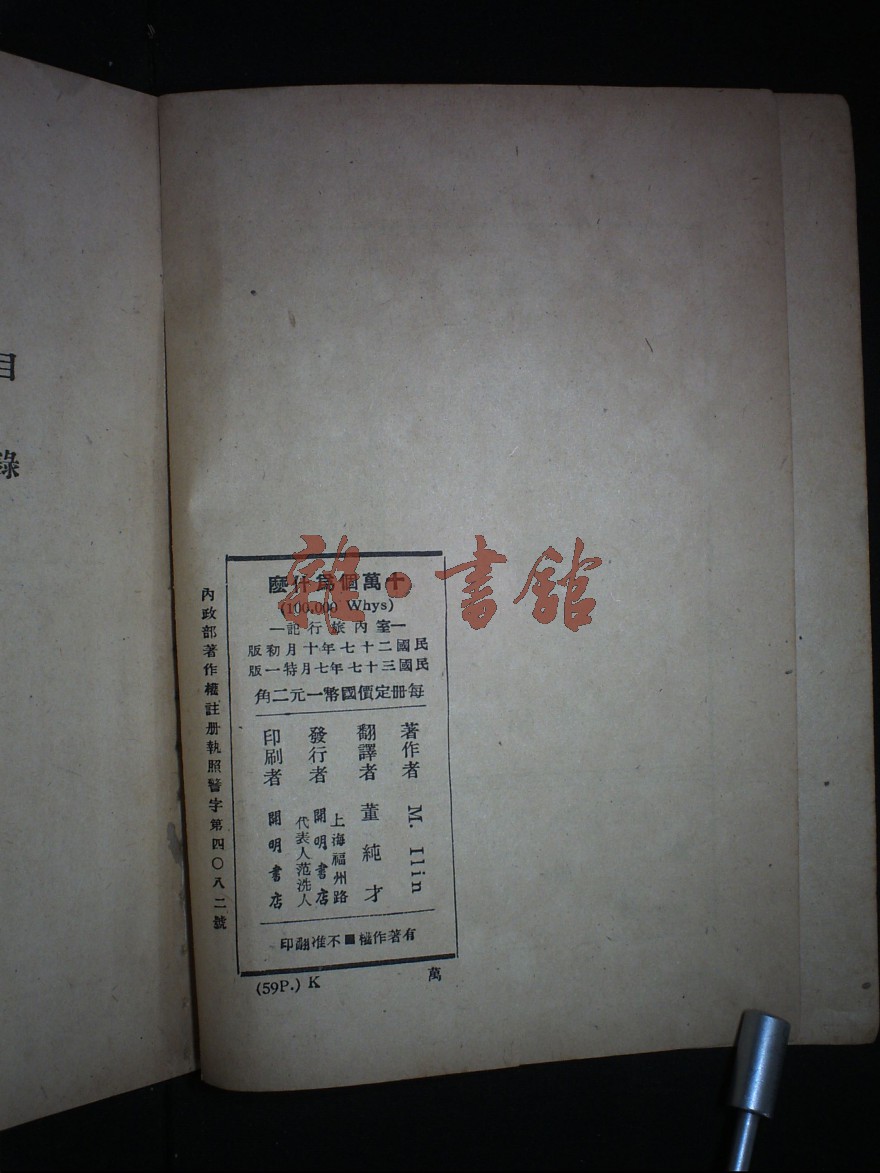 目錄
雜·書館
十萬個爲什麼
(100.000 Whys)
—室內旅行記—
民國二十七年十月初版
民國三十七年七月特一版
每册定價國幣一元二角
著作者 M. Ilin
翻譯者 董純才
發行者 上海福州路
開明書店
代表人范洗人
印刷者 開明書店
有著作權■不准翻印
(59P.) K
萬
內政部著作權註册執照警字第四〇八二號